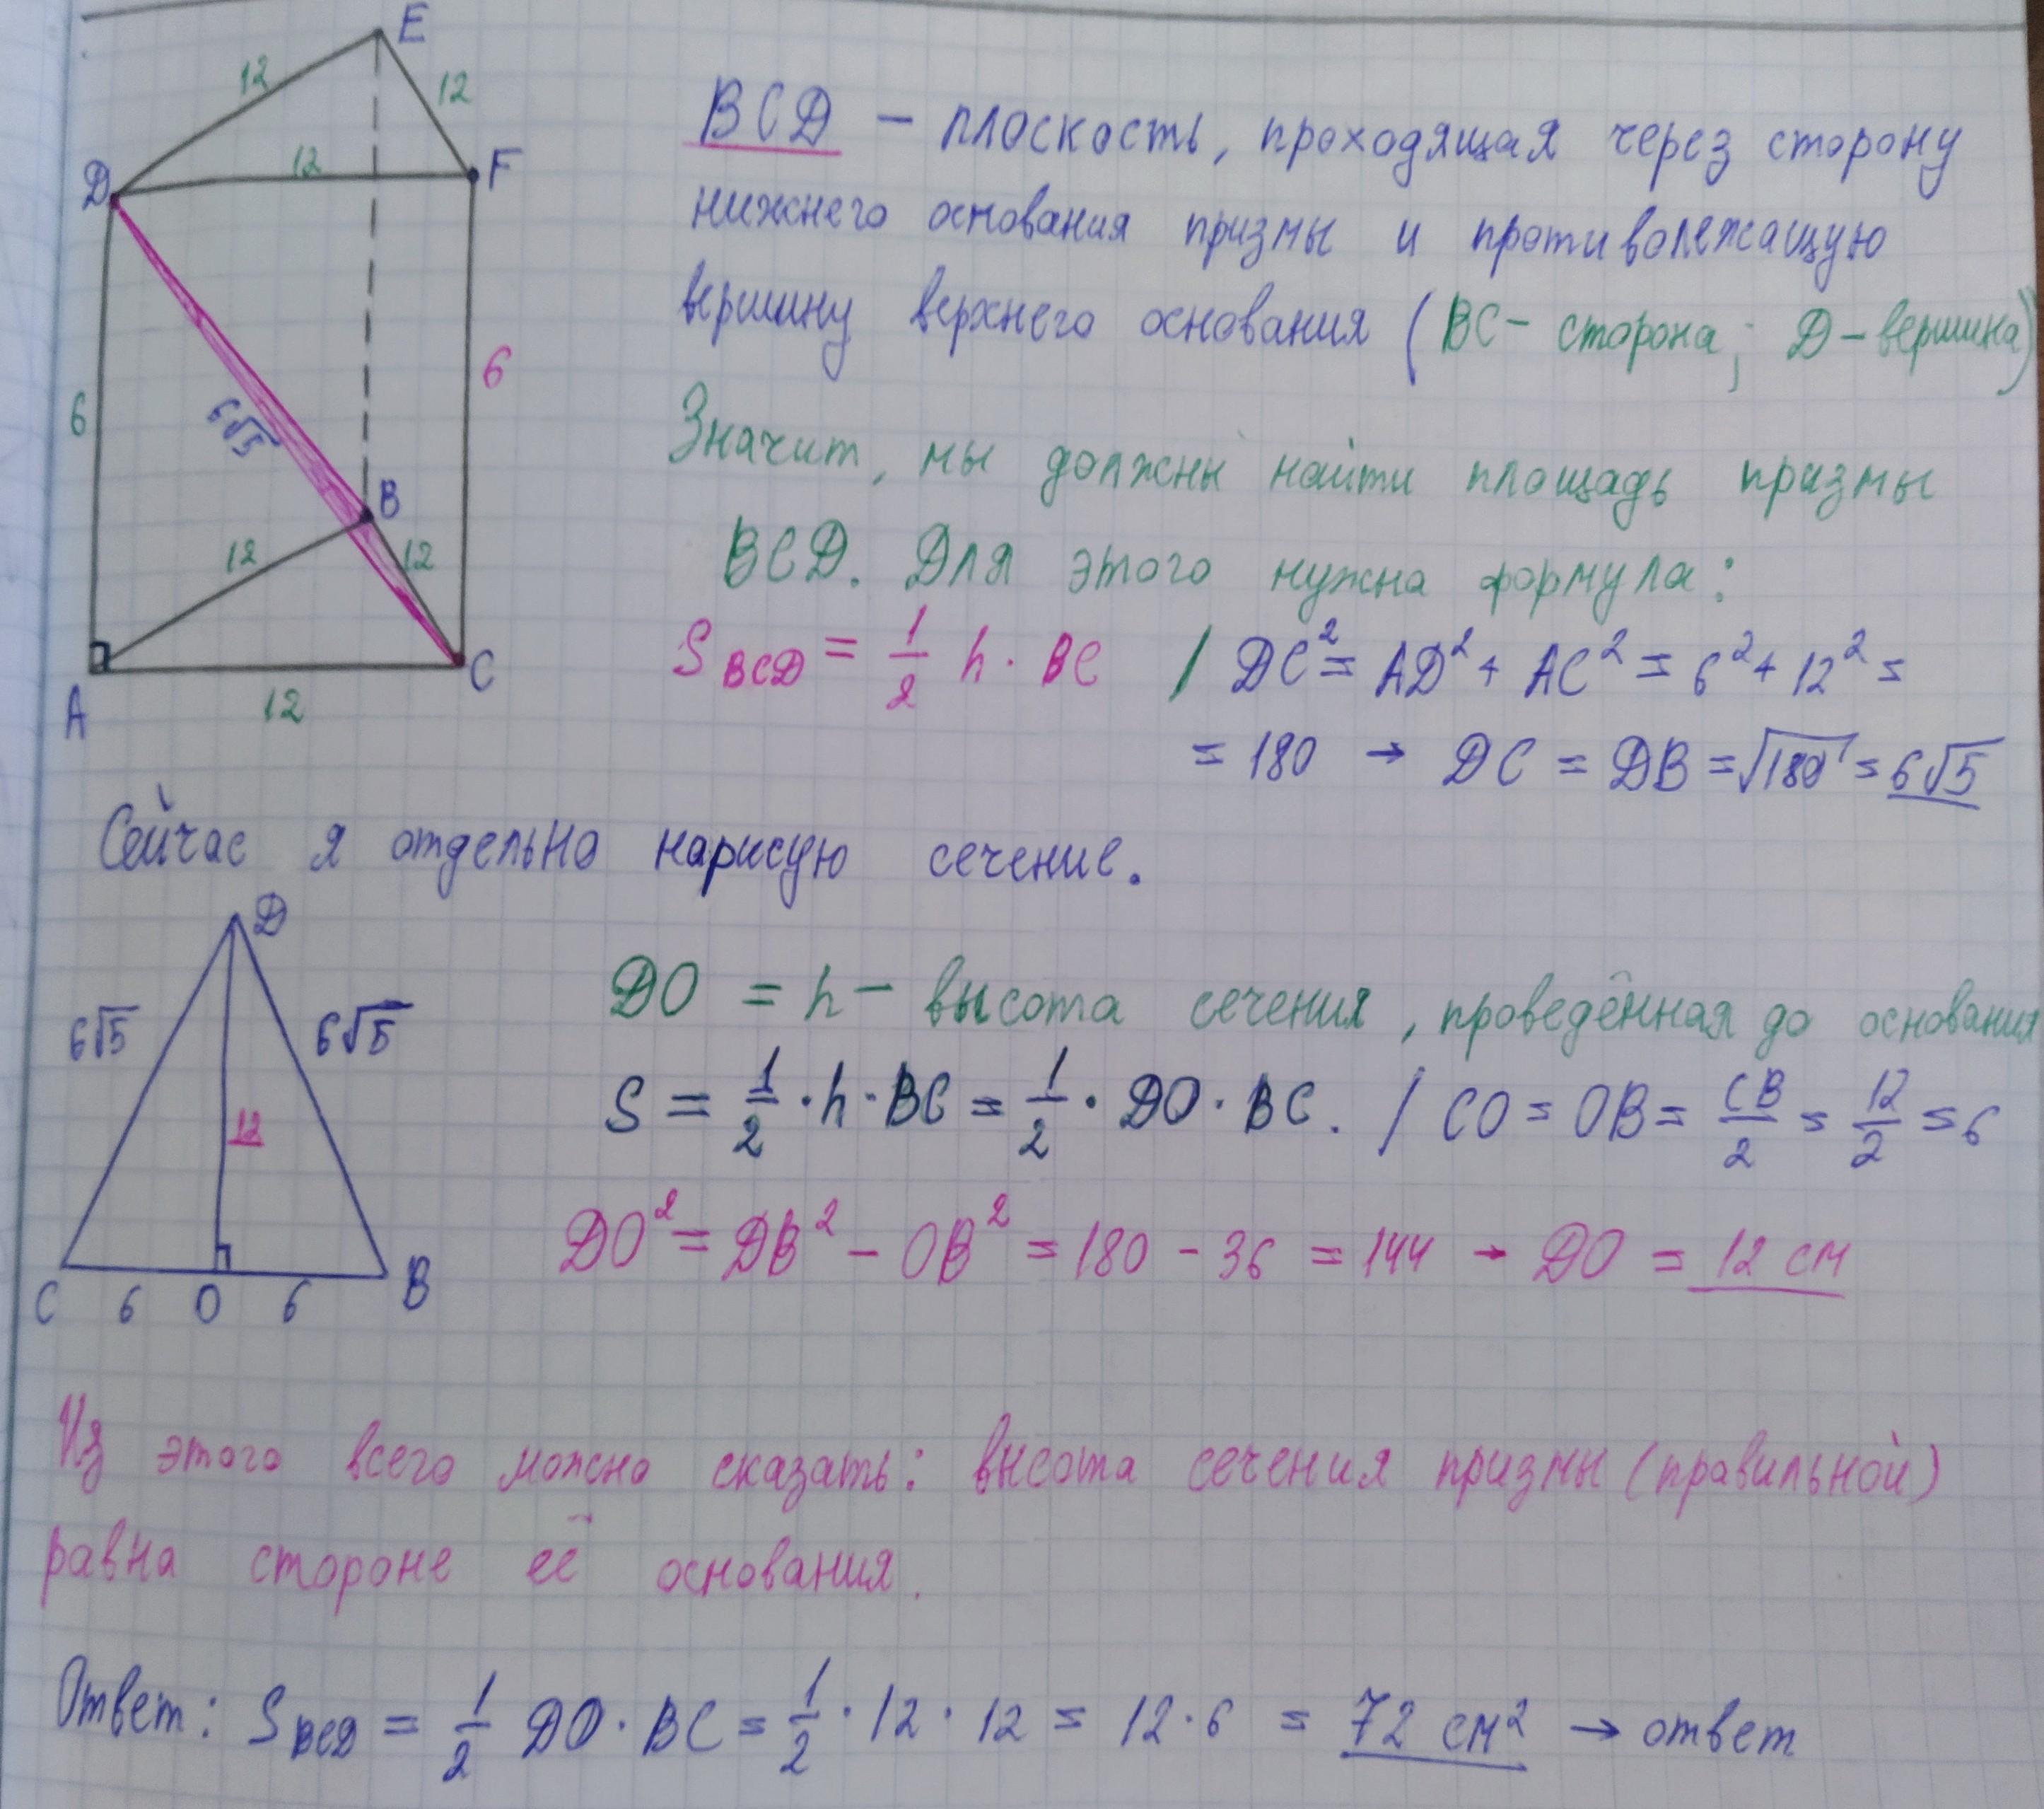 E
12
12
D
12
F
BCD – плоскость, проходящая через сторону
нижнего основания призмы и противолежащую
вершину верхнего основания (BC – сторона; D – вершина)
6
6√5
6
B
12
12
A
12
C
Значит, мы должны найти площадь призмы
BCD. Для этого нужна формула:
S BCD = 1/2 h · BC / DC² = AD² + AC² = 6² + 12² =
= 180 → DC = DB = √180 = 6√5
Сейчас я отдельно нарисую сечение.
D
6√5
6√5
12
C 6 O 6 B
DO = h – высота сечения, проведённая до основания
S = 1/2 · h · BC = 1/2 · DO · BC. / CO = OB = CB/2 = 12/2 = 6
DO² = DB² – OB² = 180 – 36 = 144 → DO = 12 см
Из этого всего можно сказать: высота сечения призмы (правильной)
равна стороне её основания.
Ответ: S BCD = 1/2 DO · BC = 1/2 · 12 · 12 = 12 · 6 = 72 см² → ответ